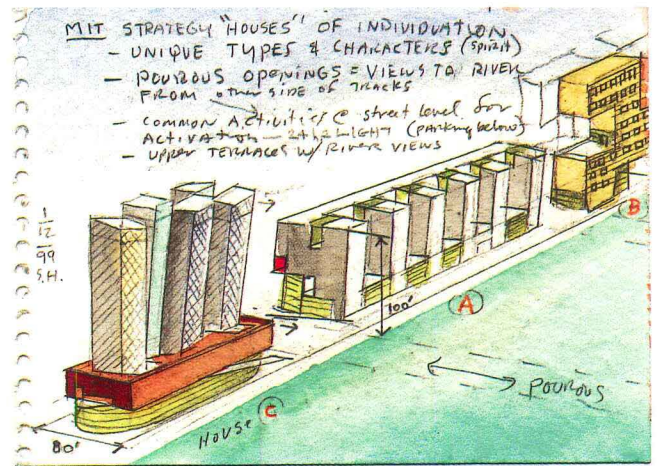 MIT STRATEGY "HOUSES" OF INDIVIDUATION
- UNIQUE TYPES & CHARACTERS (spirit)
- POUROUS OPENINGS = VIEWS TO RIVER
FROM other SIDE OF TRACKS
- COMMON ACTIVITIES @ street level for
ACTIVATION - 24hr LIGHT (parking below)
- UPPER TERRACES W/ RIVER VIEWS
1
12
99
S.H.
B
100'
A
POUROUS
HOUSE C
80'